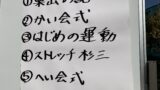 ②かい会式
③はじめの運動
④ストレッチ杉三
⑤へい会式